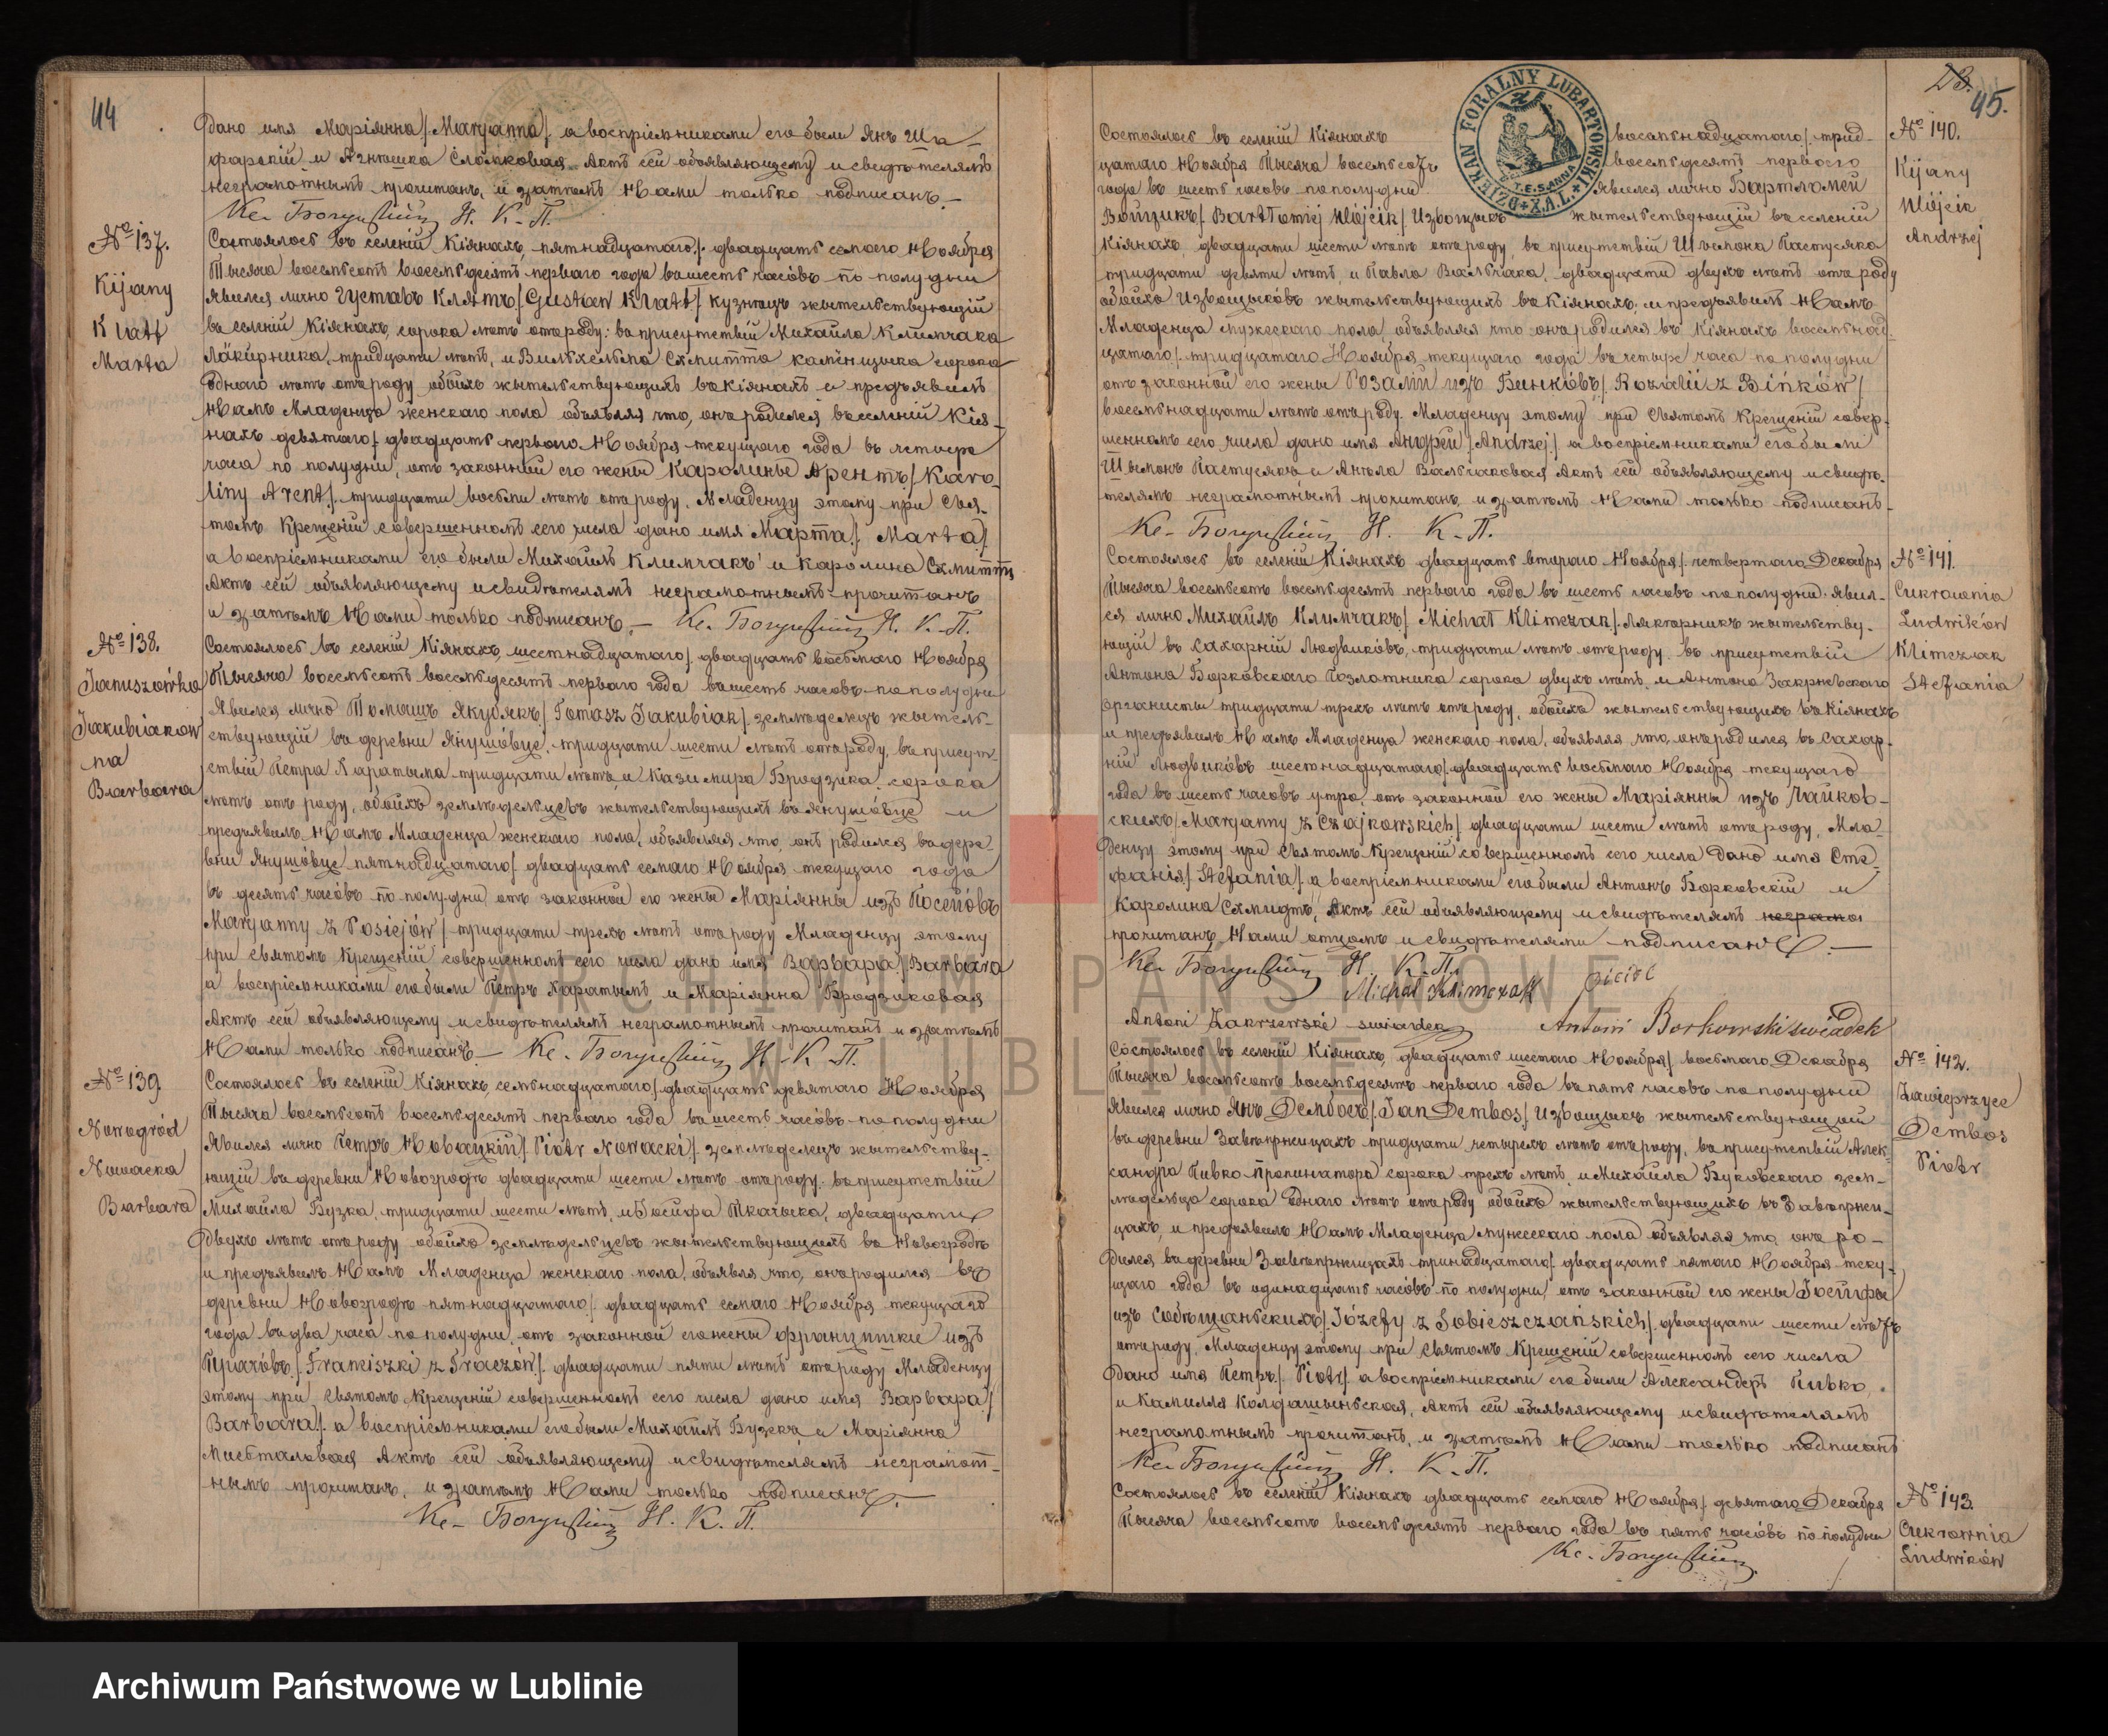 44
Дано имя Маріянна /Maryanna/ а воспріемниками его были Янъ Ша-
фарскій и Агнешка Сломковая. Актъ сей объявляющему и свидѣтелямъ
неграмотнымъ прочитанъ, и затѣмъ Нами только подписанъ.-
Кс. Богуславскій Н. К. П.
№ 137.
Kijany
Klatt
Marta
Состоялось въ селеній Кіянахъ, пятнадцатаго / двадцать седьмаго Ноября
Тысяча восемьсотъ восемьдесятъ перваго года въ шесть часо́въ по полудни
явился лично Густавъ Клятъ /Gustaw Klatt/ кузнецъ жытельствующій
въ селеній Кіянахъ, сорока лѣтъ отъ роду: въ присутствій Михаила Климчака
Лакирника, тридцати лѣтъ, и Вильхельма Схмитта каменщыка сорока
одного лѣтъ отъ роду, обоихъ жытельствующихъ въ Кіянахъ и предъявилъ
Намъ Младенца женскаго пола объявляя что, онъ родился въ селеній Кія-
нахъ девятаго / двадцать перваго Ноября текущаго года въ четыре
часа по полудни, отъ законной его жены Каролины Арентъ /Karo-
liny Arent/. тридцати восьми лѣтъ отъ роду. Младенцу этому при Свя-
томъ Крещеній совершенномъ сего числа дано имя Марта /. Marta /
а воспріемниками его были Михаилъ Климчакъ и Каролина Схмиттъ
Актъ сей объявляющему и свидѣтелямъ неграмотнымъ прочитанъ
и затѣмъ Нами только подписанъ. — Кс. Богуславскій Н. К. П.
№ 138.
Januszówka
Jakubiakow
na
Barbara
Состоялось въ селеній Кіянахъ, шестнадцатаго / двадцать восьмаго Ноября
Тысяча восемьсотъ восемьдесятъ перваго года въ шесть часовъ по полудни
явился лично Томашъ Якубякъ /Tomasz Jakubiak/. земледелецъ жытель-
ствующій въ деревни Янушо́вце, тридцати шести лѣтъ отъ роду, въ присут-
ствій Петра Харатыма тридцати лѣтъ, и Казимира Бродзика, сорока
лѣтъ отъ роду, обоихъ земледельцевъ жытельствующихъ въ Янушо́вце и
предъявилъ Намъ Младенца женскаго пола, объявляя что, онъ родился въ дере
вни Янушо́вце пятнадцатаго / двадцать седьмаго Ноября текущаго года
въ десять часо́въ по полудни отъ законной его жены Маріянны изъ Посеіо́въ
Maryanny z Posiejów / тридцати трехъ лѣтъ отъ роду Младенцу этому
при Святомъ Крещеній совершенномъ сего числа дано имя Варвара /Barbara
а воспріемниками его были Петръ Харатымъ, и Маріянна Бродзиковая
Актъ сей объявляющему и свидѣтелямъ неграмотнымъ прочитанъ и затѣмъ
Нами только подписанъ — Кс. Богуславскій Н. К. П.
№ 139
Nowogród
Nowacka
Barbara
Состоялось въ селеній Кіянахъ, семьнадцатаго / двадцать девятаго Ноября
Тысяча восемьсотъ восемьдесятъ перваго года въ шесть часо́въ по полудни
явился лично Петръ Новацкій /. Piotr Nowacki /. земледелецъ жытельству-
ющій въ деревни Новогродъ двадцати шести лѣтъ отъ роду. въ присутствій
Михаила Бузка, тридцати шести лѣтъ, и Іосифа Ткачыка, двадцати
двухъ лѣтъ отъ роду обоихъ земледельцевъ жытельствующихъ въ Новогродъ
и предъявилъ Намъ Младенца женскаго пола, объявля что, онъ родился въ
деревни Новогродъ пятнадцатаго /. двадцать седьмаго Ноября текущаго
года въ два часа по полудни, отъ законной его жены Францишки изъ
/. Franciszki z Traczów /. двадцати пяти лѣтъ отъ роду Младенцу
этому при Святомъ Крещеній совершенномъ сего числа дано имя Варвара /
Barbara /. а воспріемниками его были Михаилъ Бузекъ и Маріянна
Актъ сей объявляющему и свидѣтелямъ неграмот-
нымъ прочитанъ, и затѣмъ Нами только подписанъ.
Кс. Богуславскій Н. К. П.
23.
45.
DZIEKAN FORALNY LUBARTOWSKI
T.E.S.ANNA
№ 140.
Kijany
Wójcik
Andrzej
Состоялось въ селеній Кіянахъ восемьнадцатаго /. трид-
цатаго Ноября Тысяча восемьсотъ восемьдесятъ перваго
года въ шесть часовъ по полудни явился лично Бартломей
Войцикъ /. Bartłomiej Wójcik / Извощыкъ жытельствующій въ селеній
Кіянахъ, двадцати шести лѣтъ отъ роду, въ присутствій Шымона Пастусяка
тридцати девяти лѣтъ, и Павла Вальчака, двадцати двухъ лѣтъ отъ роду
обойхъ Извощыко́въ жытельствующихъ въ Кіянахъ; и предъявилъ Намъ
Младенца мужескаго пола, объявляя что онъ родился въ Кіянахъ восемьнад
цатаго /. тридцатаго Ноября текущаго года въ четыре часа по полудни
отъ законной его жены Розалій изъ Бинько́въ /. Rozalii z Bińków /
восемьнадцати лѣтъ отъ роду. Младенцу этому при Святомъ Крещеній совер-
шенномъ сего числа дано имя Андрей /Andrzej/. а воспріемниками его были
Шымонъ Пастусякъ и Ангела Вальчаковая Актъ сей объявляющему и свидѣ-
телямъ неграмотнымъ прочитанъ, и затѣмъ Нами только подписанъ-
Кс. Богуславскій Н. К. П.
№ 141.
Cukrownia
Ludwików
Klimczak
Stefania
Состоялось въ селеній Кіянахъ двадцать втораго Ноября /. четвертаго Декабря
Тысяча восемьсотъ восемьдесятъ перваго года въ шесть часовъ по полудни. явил-
ся лично Михаилъ Климчакъ /. Michał Klimczak /. Лякгорникъ жытельству-
ющій въ Сахарній Людвико́въ, тридцати лѣтъ отъ роду. въ присутствій
Антона Борковскаго Позлотника сорока двухъ лѣтъ, и Антона Закржевскаго
Органисты тридцати трехъ лѣтъ отъ роду, обойхъ жытельствующихъ въ Кіянахъ
и предъявилъ Намъ Младенца женскаго пола, объявляя что, онъ родился въ Сахар-
ній Людвико́въ шестнадцатаго /. двадцать восьмаго Ноября текущаго
года въ шесть часовъ утра, отъ законной его жены Маріянны изъ Чайков-
скихъ /. Maryanny z Czajkowskich /. двадцати шести лѣтъ отъ роду, Мла-
денцу этому при Святомъ Крещеній совершенномъ сего числа дано имя Сте-
фанія /. Stefania /. а воспріемниками его были Антонъ Борковскій и
Каролина Схмидтъ, Актъ сей объявляющему и свидѣтелямъ неграмо
прочитанъ, Нами отцомъ и свидѣтелями подписанъ. —
Кс. Богуславскій Н. К. П.
Michał Klimczak Oiciec
Antoni Zakrzewski swiadek Antoni Borkowski swiadek
№ 142.
Zawieprzyce
Dembos
Piotr
Состоялось въ селеній Кіянахъ, двадцать шестаго Ноября /. восьмаго Декабря
Тысяча восемьсотъ восемьдесятъ перваго года въ пять часовъ по полудни
явился лично Янъ Дембосъ /. Jan Dembos /. Извощыкъ жытельствующій
въ деревни Завѣпржицахъ тридцати четырехъ лѣтъ отъ роду, въ присутствій Алек-
сандра Пивко Пропинатора сорока трехъ лѣтъ, и Михаила Буковскаго зем-
ледельца сорока одного лѣтъ отъ роду обойхъ жытельствующихъ въ Завѣпржи-
цахъ, и предъявилъ Намъ Младенца мужескаго пола объявляя что онъ ро-
дился въ деревни Завѣпржицахъ тринадцатаго /. двадцать пятаго Ноября теку-
щаго года въ одинадцать часо́въ по полудни, отъ законной его жены Іосифы
изъ Собѣщанскихъ /. Józefy z Sobieszczańskich /. двадцати шести лѣтъ
отъ роду. Младенцу этому при Святомъ Крещеній совершенномъ сего числа
дано имя Петръ /. Piotr /. а воспріемниками его были Александеръ Пивко,
и Камилля Актъ сей объявляющему и свидѣтелямъ
неграмотнымъ прочитанъ, и затѣмъ Нами только подписанъ
Кс. Богуславскій Н. К. П.
№ 143.
Cukrownia
Ludwików
Состоялось въ селеній Кіянахъ двадцать седьмаго Ноября /. девятаго Декабря
Тысяча восемьсотъ восемьдесятъ перваго года въ пять часо́въ по полудни
Кс. Богуславскій
ARCHIWUM PAŃSTWOWE
W LUBLINIE
Archiwum Państwowe w Lublinie